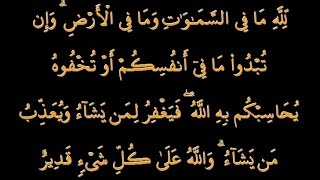 لِّلَّهِ مَا فِي السَّمَـٰوَٰتِ وَمَا فِي الْأَرْضِ ۗ وَإِن
تُبْدُوا۟ مَا فِىٓ أَنفُسِكُمْ أَوْ تُخْفُوهُ
يُحَاسِبْكُم بِهِ اللَّهُ ۖ فَيَغْفِرُ لِمَن يَشَآءُ وَيُعَذِّبُ
مَن يَشَآءُ ۗ وَاللَّهُ عَلَىٰ كُلِّ شَىْءٍ قَدِيرٌ